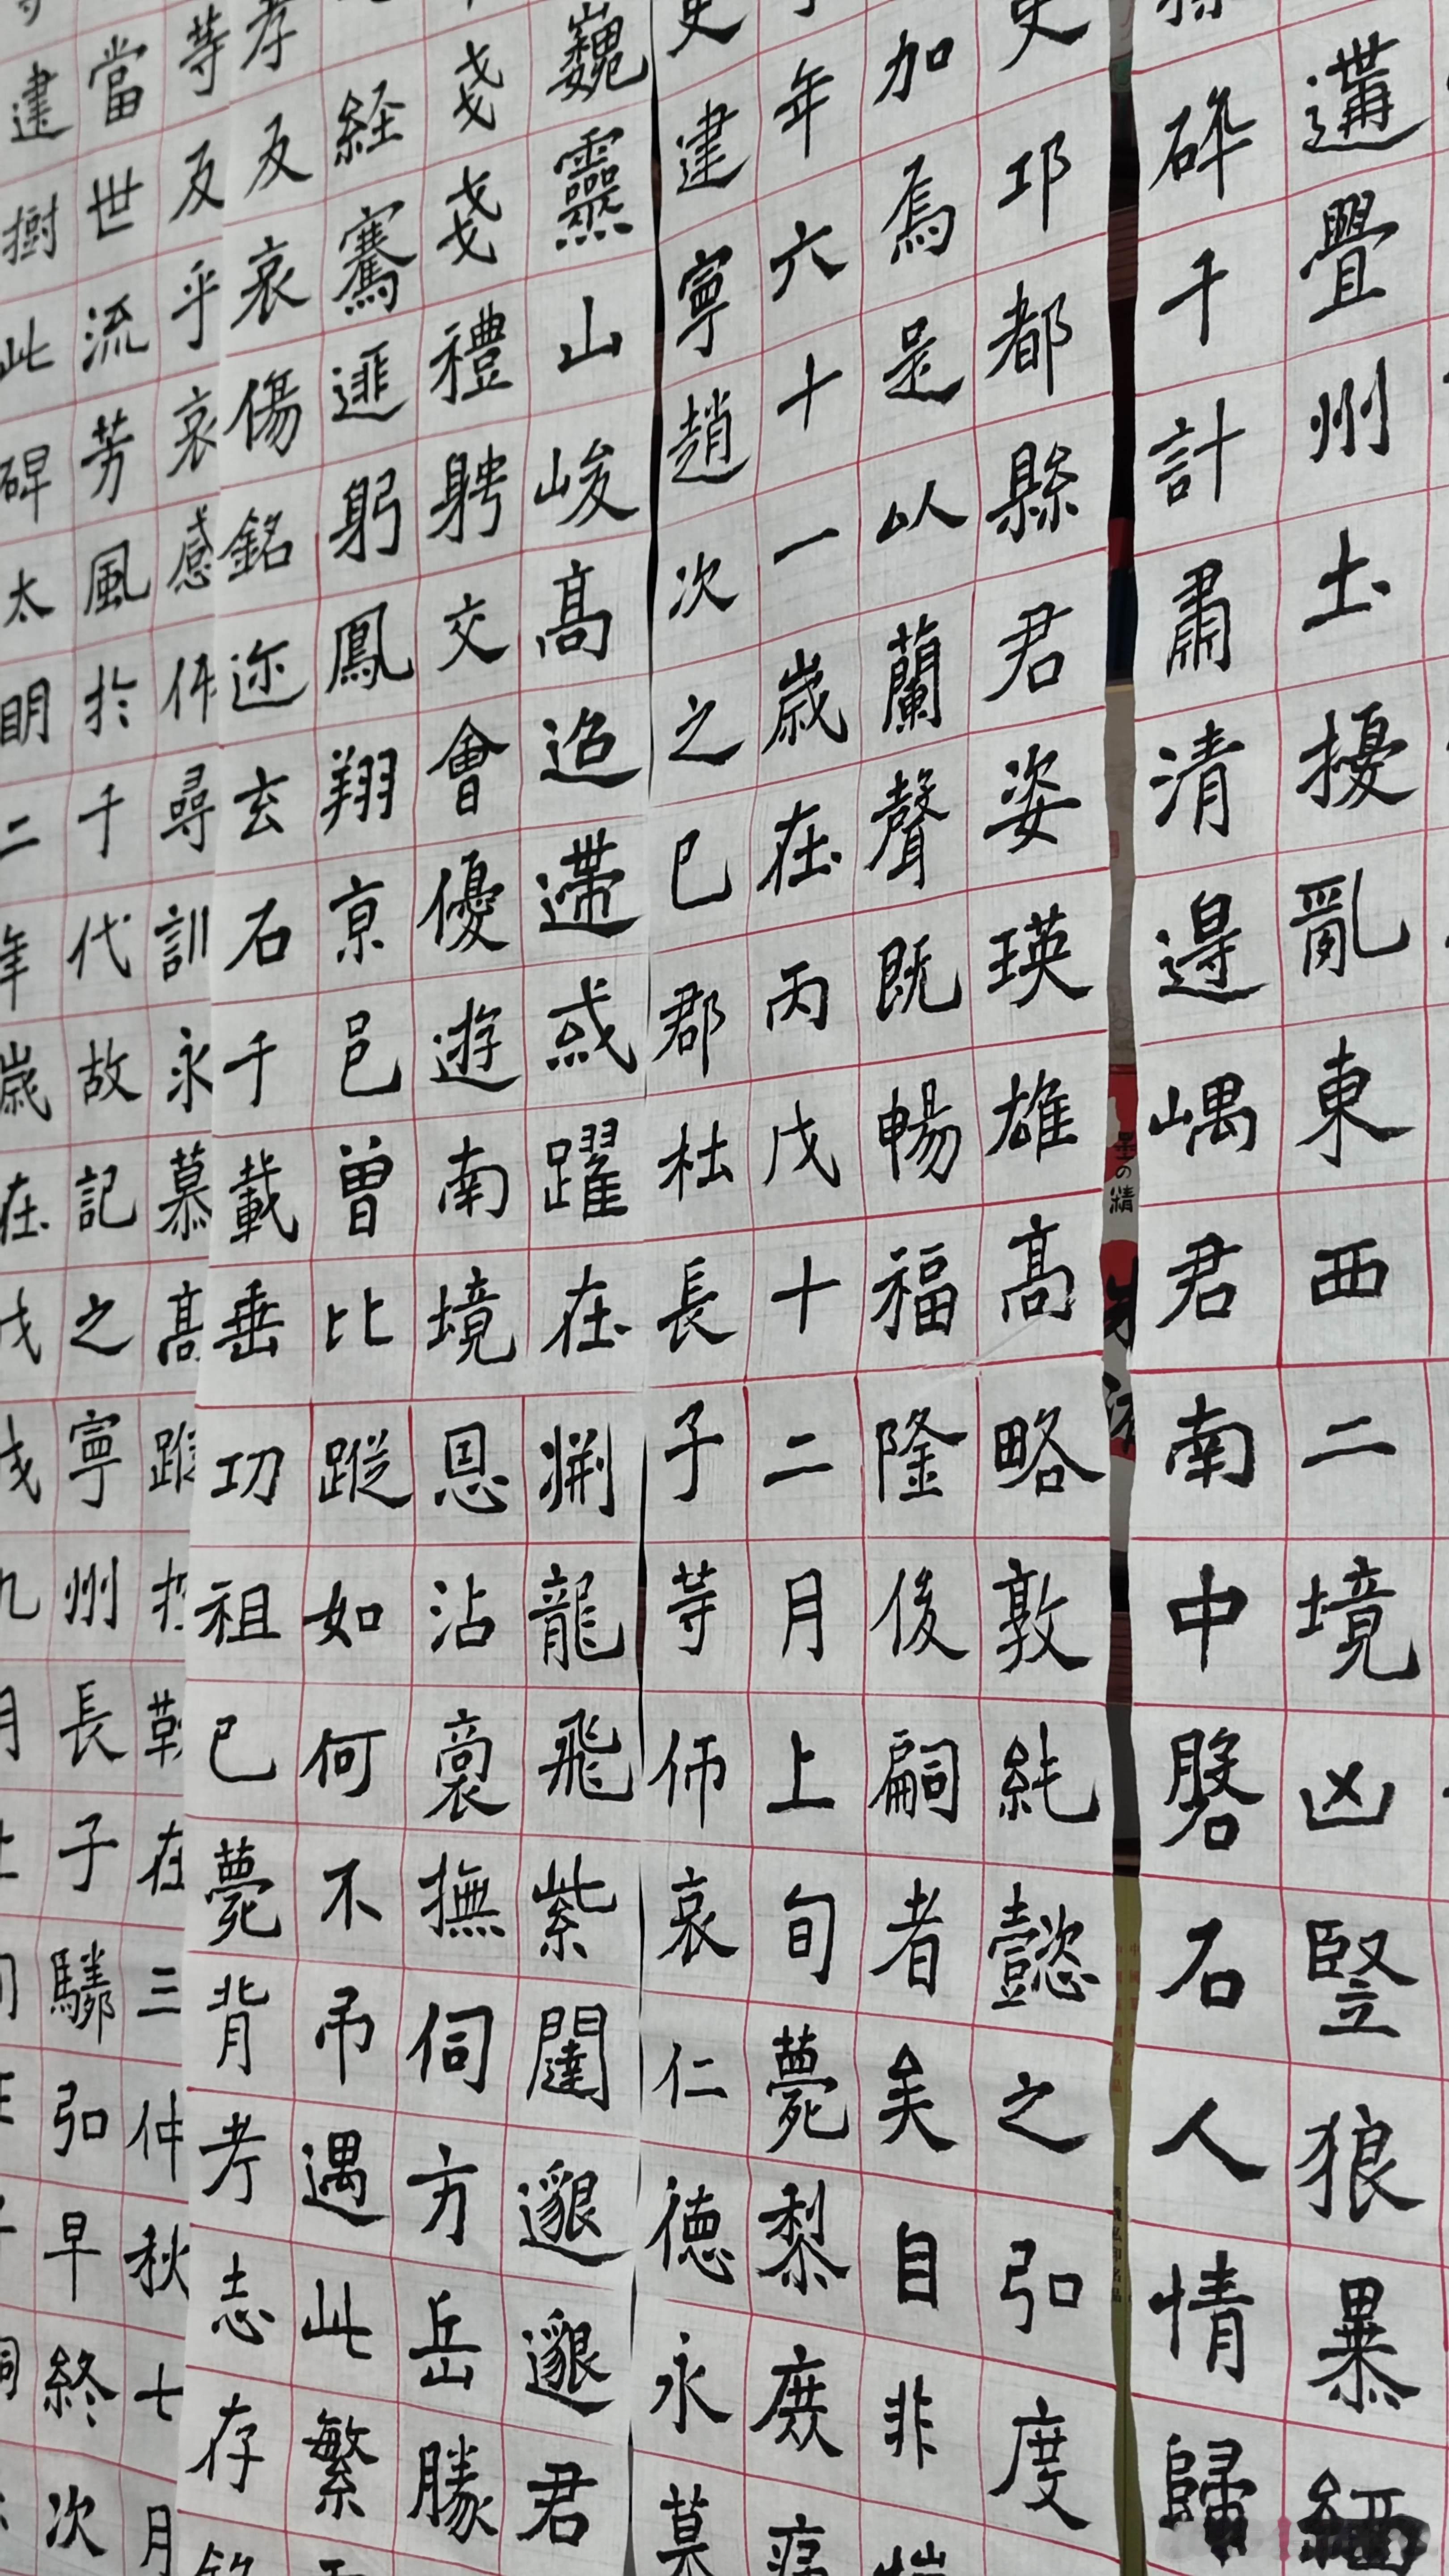 遘疊州土擾亂東西二境凶豎狼暴緬
碎千計肅清邊嵎君南中磐石人情歸
邛都縣君姿瑛雄高略敦純懿之弘度
加焉是以蘭聲既暢福隆後嗣者矣自非
年六十一歲在丙戌十二月上旬薨黎庶
吏建寧趙次之巴郡杜長子等仰哀仁德永慕
巍靈山峻高迢遰或躍在淵龍飛紫闥邈邈君
戔戔禮聘交會優遊南境恩沾裔撫伺方岳勝
経騫匪躬鳳翔京邑曾比蹤如何不弔遇此繁
孝友哀傷銘迹玄石千載垂功祖已薨背考志存銘
等友乎哀感仰尋訓永慕高蹤在三仲秋七月
當世流芳風於千代故記之寧州長子驎弘早終次
建樹此碑太明二年歲在戊戌九月上旬